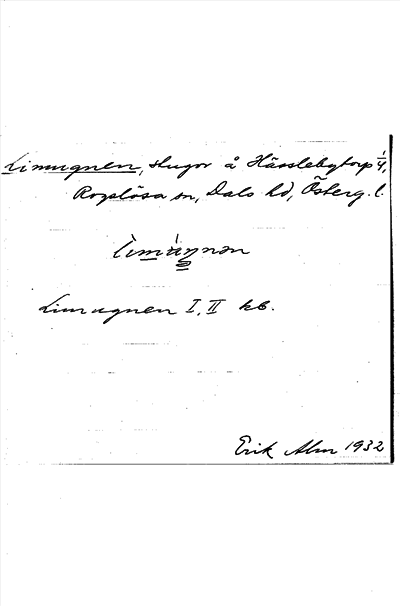 Limugnen, stugor å Hässlebytorp 1/4,
Rogslösa sn, Dals hd, Österg. l.
Limugnen I, II kb.
Erik Alm 1932